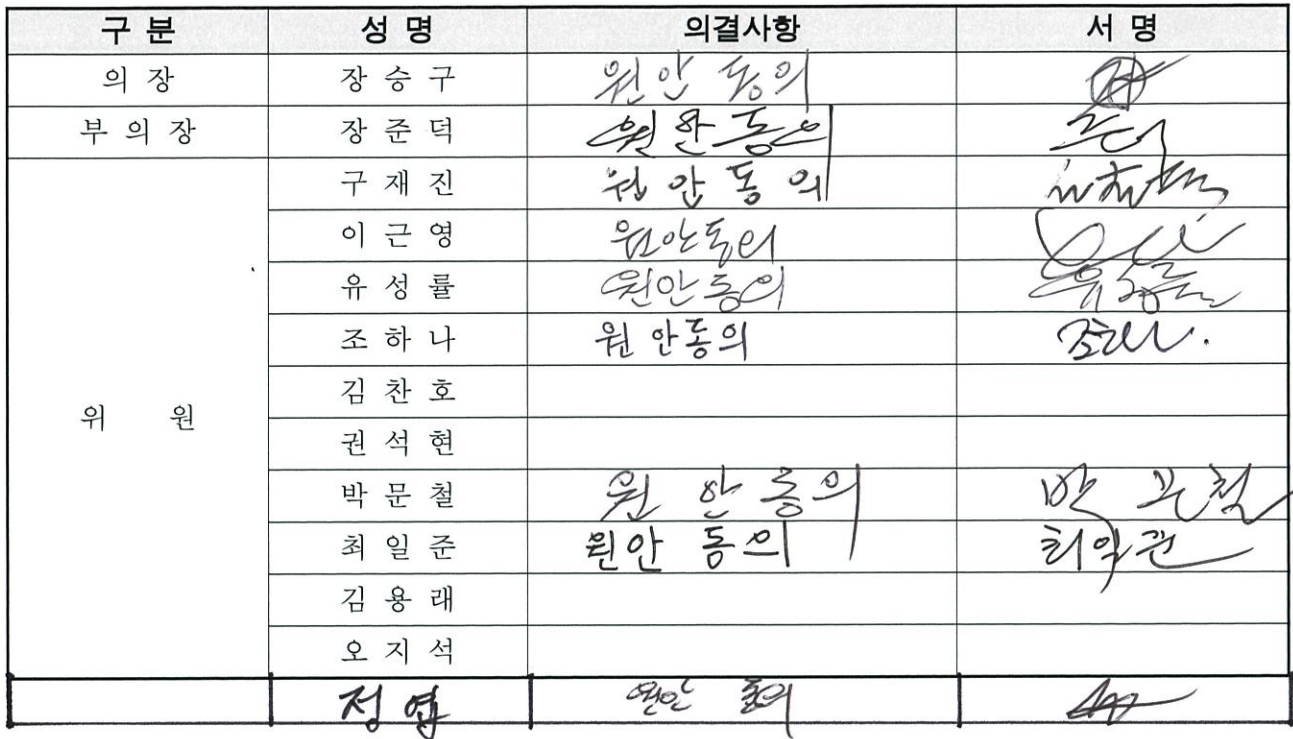 구 분 성 명 의결사항 서 명
의 장 장 승 구 원안 동의
부 의 장 장 준 덕 원안동의
구 재 진 원안동의
이 근 영 원안동의
유 성 률 원안동의 유성률
조 하 나 원안동의 조하나.
김 찬 호
위 원
권 석 현
박 문 철 원안동의 박문철
최 일 준 원안 동의
김 용 래
오 지 석
정 엽 원안 동의